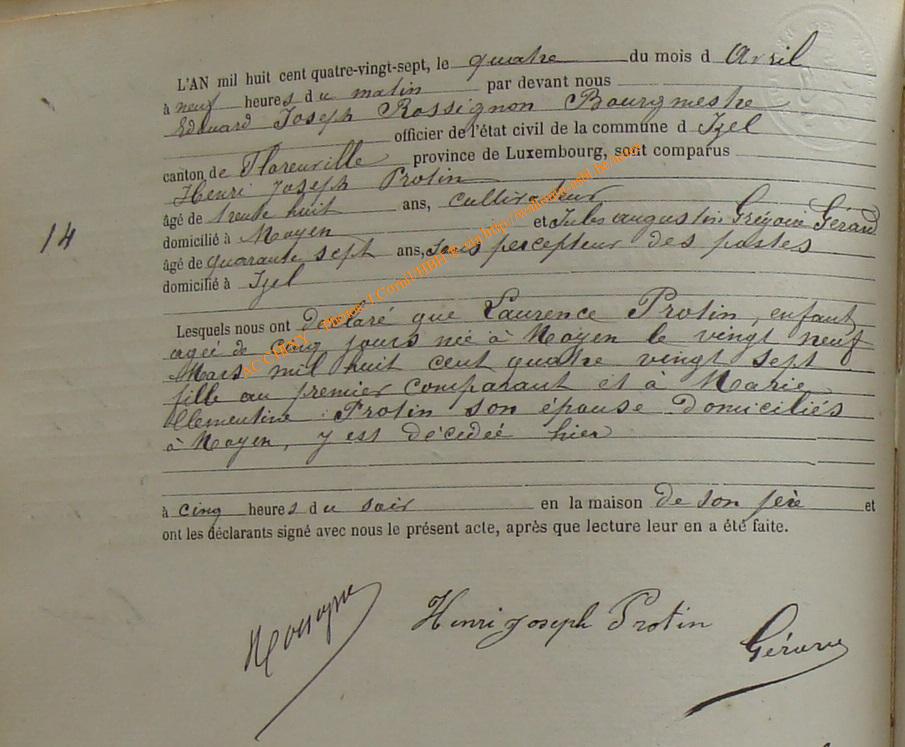 L'AN mil huit cent quatre-vingt-sept, le quatre du mois d Avril
à neuf heures du matin par devant nous
Edouard Joseph Rossignon Bourgmestre
officier de l'état civil de la commune d Izel
canton de Florenville province de Luxembourg, sont comparus
Henri Joseph Protin
âgé de trente huit ans, cultivateur
domicilié à Moyen et Jules augustin Grégoire Gerard
14
âgé de quarante sept ans, sous percepteur des postes
domicilié à Izel
Lesquels nous ont déclaré que Laurence Protin, enfant
agée de cinq jours née à Moyen le vingt neuf
Mars mil huit cent quatre vingt sept
fille au premier comparant et à Marie
Clementine Protin son épouse domiciliés
à Moyen, y est décédée hier
à cinq heures du soir en la maison de son père et
ont les déclarants signé avec nous le présent acte, après que lecture leur en a été faite.
Henri joseph Protin
ACCHCAY - Photos J Cornil HBH